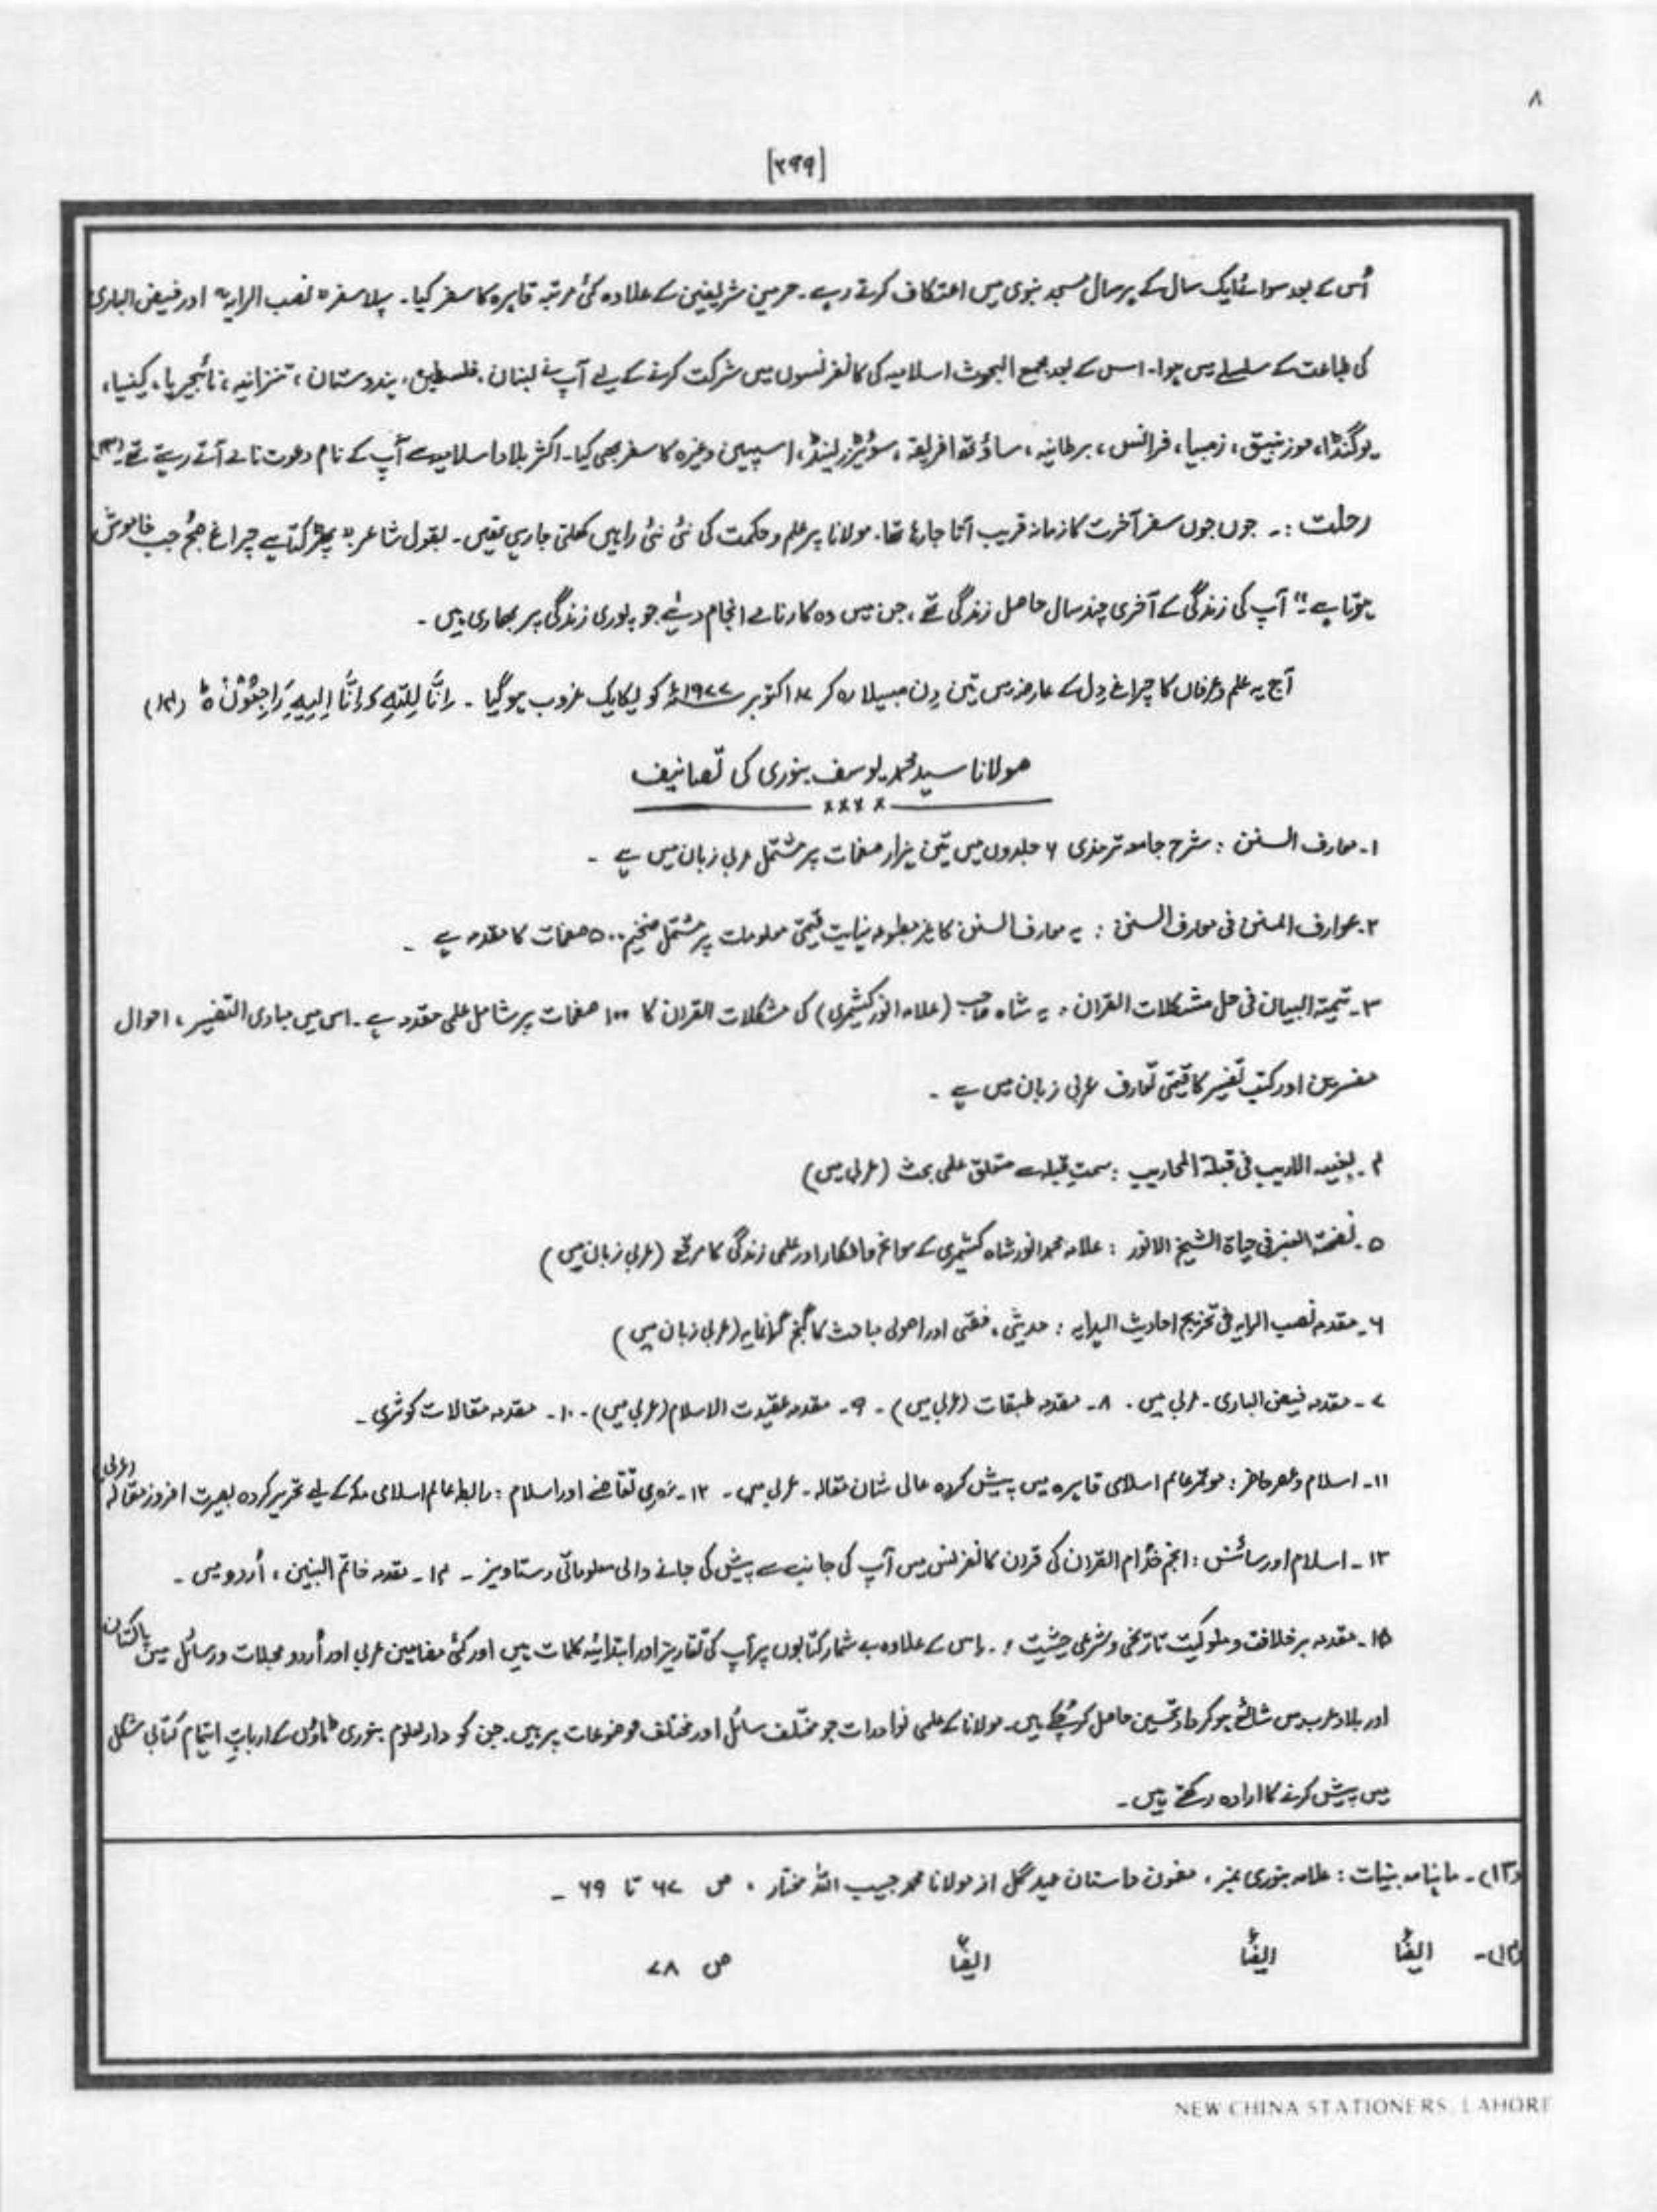 ۸
[۲۹۹]
اُس کے بعد سوائے ایک سال کے ہر سال مسجد نبوی میں اعتکاف کرتے رہے۔ حرمین شریفین کے علاوہ کئی مرتبہ قاہرہ کا سفر کیا۔ پہلا سفر " نصب الرایہ" اور فیض الباری
کی طباعت کے سلسلے میں ہوا۔ اس کے بعد مجمع البحوث اسلامیہ کی کانفرنسوں میں شرکت کرنے کے لیے آپ نے لبنان، فلسطین، ہندوستان، تنزانیہ، نائجیریا، کینیا،
یوگنڈا، موزنبیق، زمبیا، فرانس، برطانیہ، ساؤتھ افریقہ، سوئیزرلینڈ، اسپین وغیرہ کا سفر بھی کیا۔ اکثر بلاد اسلامیہ سے آپ کے نام دعوت نامے آتے رہتے تھے۔ (۱۳)
رحلت :۔ جوں جوں سفر آخرت کا زمانہ قریب آتا جارہا تھا۔ مولانا پر علم و حکمت کی نئی نئی راہیں کھلتی جارہی تھیں۔ بقول شاعر " بھڑکتا ہے چراغ صبح جب خاموش
ہوتا ہے " آپ کی زندگی کے آخری چند سال حاصل زندگی تھے، جن میں وہ کارنامے انجام دئیے جو پوری زندگی پر بھاری ہیں ۔
آج یہ علم و عرفاں کا چراغ دِل کے عارضہ میں تین دِن مبتلا رہ کر ۱۷ اکتوبر ۱۹۷۷ء کو یکایک غروب ہوگیا ۔ اِنَّا لِلّٰہِ وَ اِنَّا اِلَیہِ رَاجِعُوْنْ ہ (۱۴)
مولانا سید محمد یوسف بنوری کی تصانیف
۱۔ معارف السنن : شرح جامع ترمذی ۶ جلدوں میں تین ہزار صفحات پر مشتمل عربی زبان میں ہے ۔
۲۔ عوارف المنن فی معارف السنن : یہ معارف السنن کا غیر مطبوعہ نہایت قیمتی معلومات پر مشتمل ضخیم ۵۰۰ صفحات کا مقدمہ ہے ۔
۳۔ تیمۃ البیان فی حل مشکلات القران : یہ شاہ صاحب (علامہ انور کشمیری) کی مشکلات القران کا ۱۰۰ صفحات پر شامل علمی مقدمہ ہے۔ اس میں مبادی التفسیر، احوال
مفسرین اور کتب تفسیر کا قیمتی تعارف عربی زبان میں ہے ۔
۴۔ بغیہ الاریب فی قبلۃ المحاریب : سمتِ قبلہ سے متعلق علمی بحث (عربی میں)
۵۔ نفحۃ العنبر فی حیاۃ الشیخ الانور : علامہ محمد انور شاہ کشمیری کے سوانح و افکار اور علمی زندگی کا مرقع (عربی زبان میں)
۶۔ مقدمہ نصب الرایہ فی تخریج احادیث الہدایہ : حدیثی، فقہی اور اصولی مباحث کا گنج گرانمایہ (عربی زبان میں )
۷۔ مقدمہ فیض الباری۔ عربی میں ۔ ۸۔ مقدمہ طبقات (عربی میں)۔ ۹۔ مقدمہ عقیدت الاسلام (عربی میں)۔ ۱۰۔ مقدمہ مقالات کوثری ۔
۱۱۔ اسلام و عصر حاضر : موتمر عالم اسلامی قاہرہ میں پیش کردہ عالی شان مقالہ ۔ عربی میں ۔ ۱۲۔ عصری تقاضے اور اسلام : رابطہ عالم اسلامی مکہ کے لیے تحریر کردہ بصیرت افروز مقالہ (عربی)
۱۳۔ اسلام اور سائنس : انجمن خدّام القران کی قران کانفرنس میں آپ کی جانب سے پیش کی جانے والی معلوماتی دستاویز ۔ ۱۴۔ مقدمہ خاتم النبین، اُردو میں ۔
۱۵۔ مقدمہ بر خلافت و ملوکیت تاریخی و شرعی حیثیت :۔ اس کے علاوہ بے شمار کتابوں پر آپ کی تقاریز اور ابتدائیہ کلمات ہیں اور کئی مضامین عربی اور اُردو مجلات و رسائل میں پاکستان
اور بلاد عرب میں شائع ہوکر داد تحسین حاصل کرچکے ہیں۔ مولانا کے علمی نوادرات جو مختلف مسائل اور مختلف موضوعات پر ہیں۔ جن کو دارلعلوم بنوری ٹاؤن کے اربابِ اہتمام کتابی شکل
میں پیش کرنے کا ارادہ رکھتے ہیں ۔
(۱۳)۔ ماہنامہ بینات : علامہ بنوری نمبر، مضمون داستان عہد گل از مولانا محمد حبیب اللہ مختار ۔ ص ۶۷ تا ۶۹ ۔
(۱۴)۔ ایضاً ایضاً ایضاً ص ۷۸
NEW CHINA STATIONERS, LAHORE